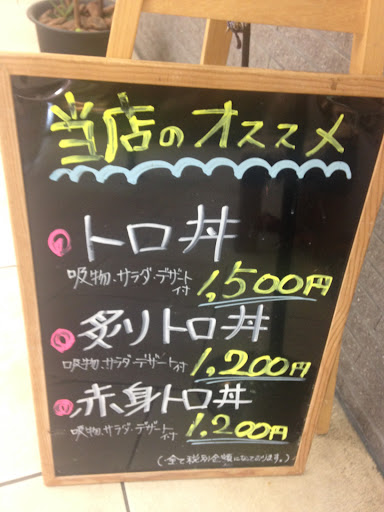 当店のオススメ
トロ丼
吸物、サラダ、デザート付 1,500円
炙りトロ丼
吸物、サラダ、デザート付 1,200円
赤身トロ丼
吸物、サラダ、デザート付 1,200円
(全て税別金額になっております。)